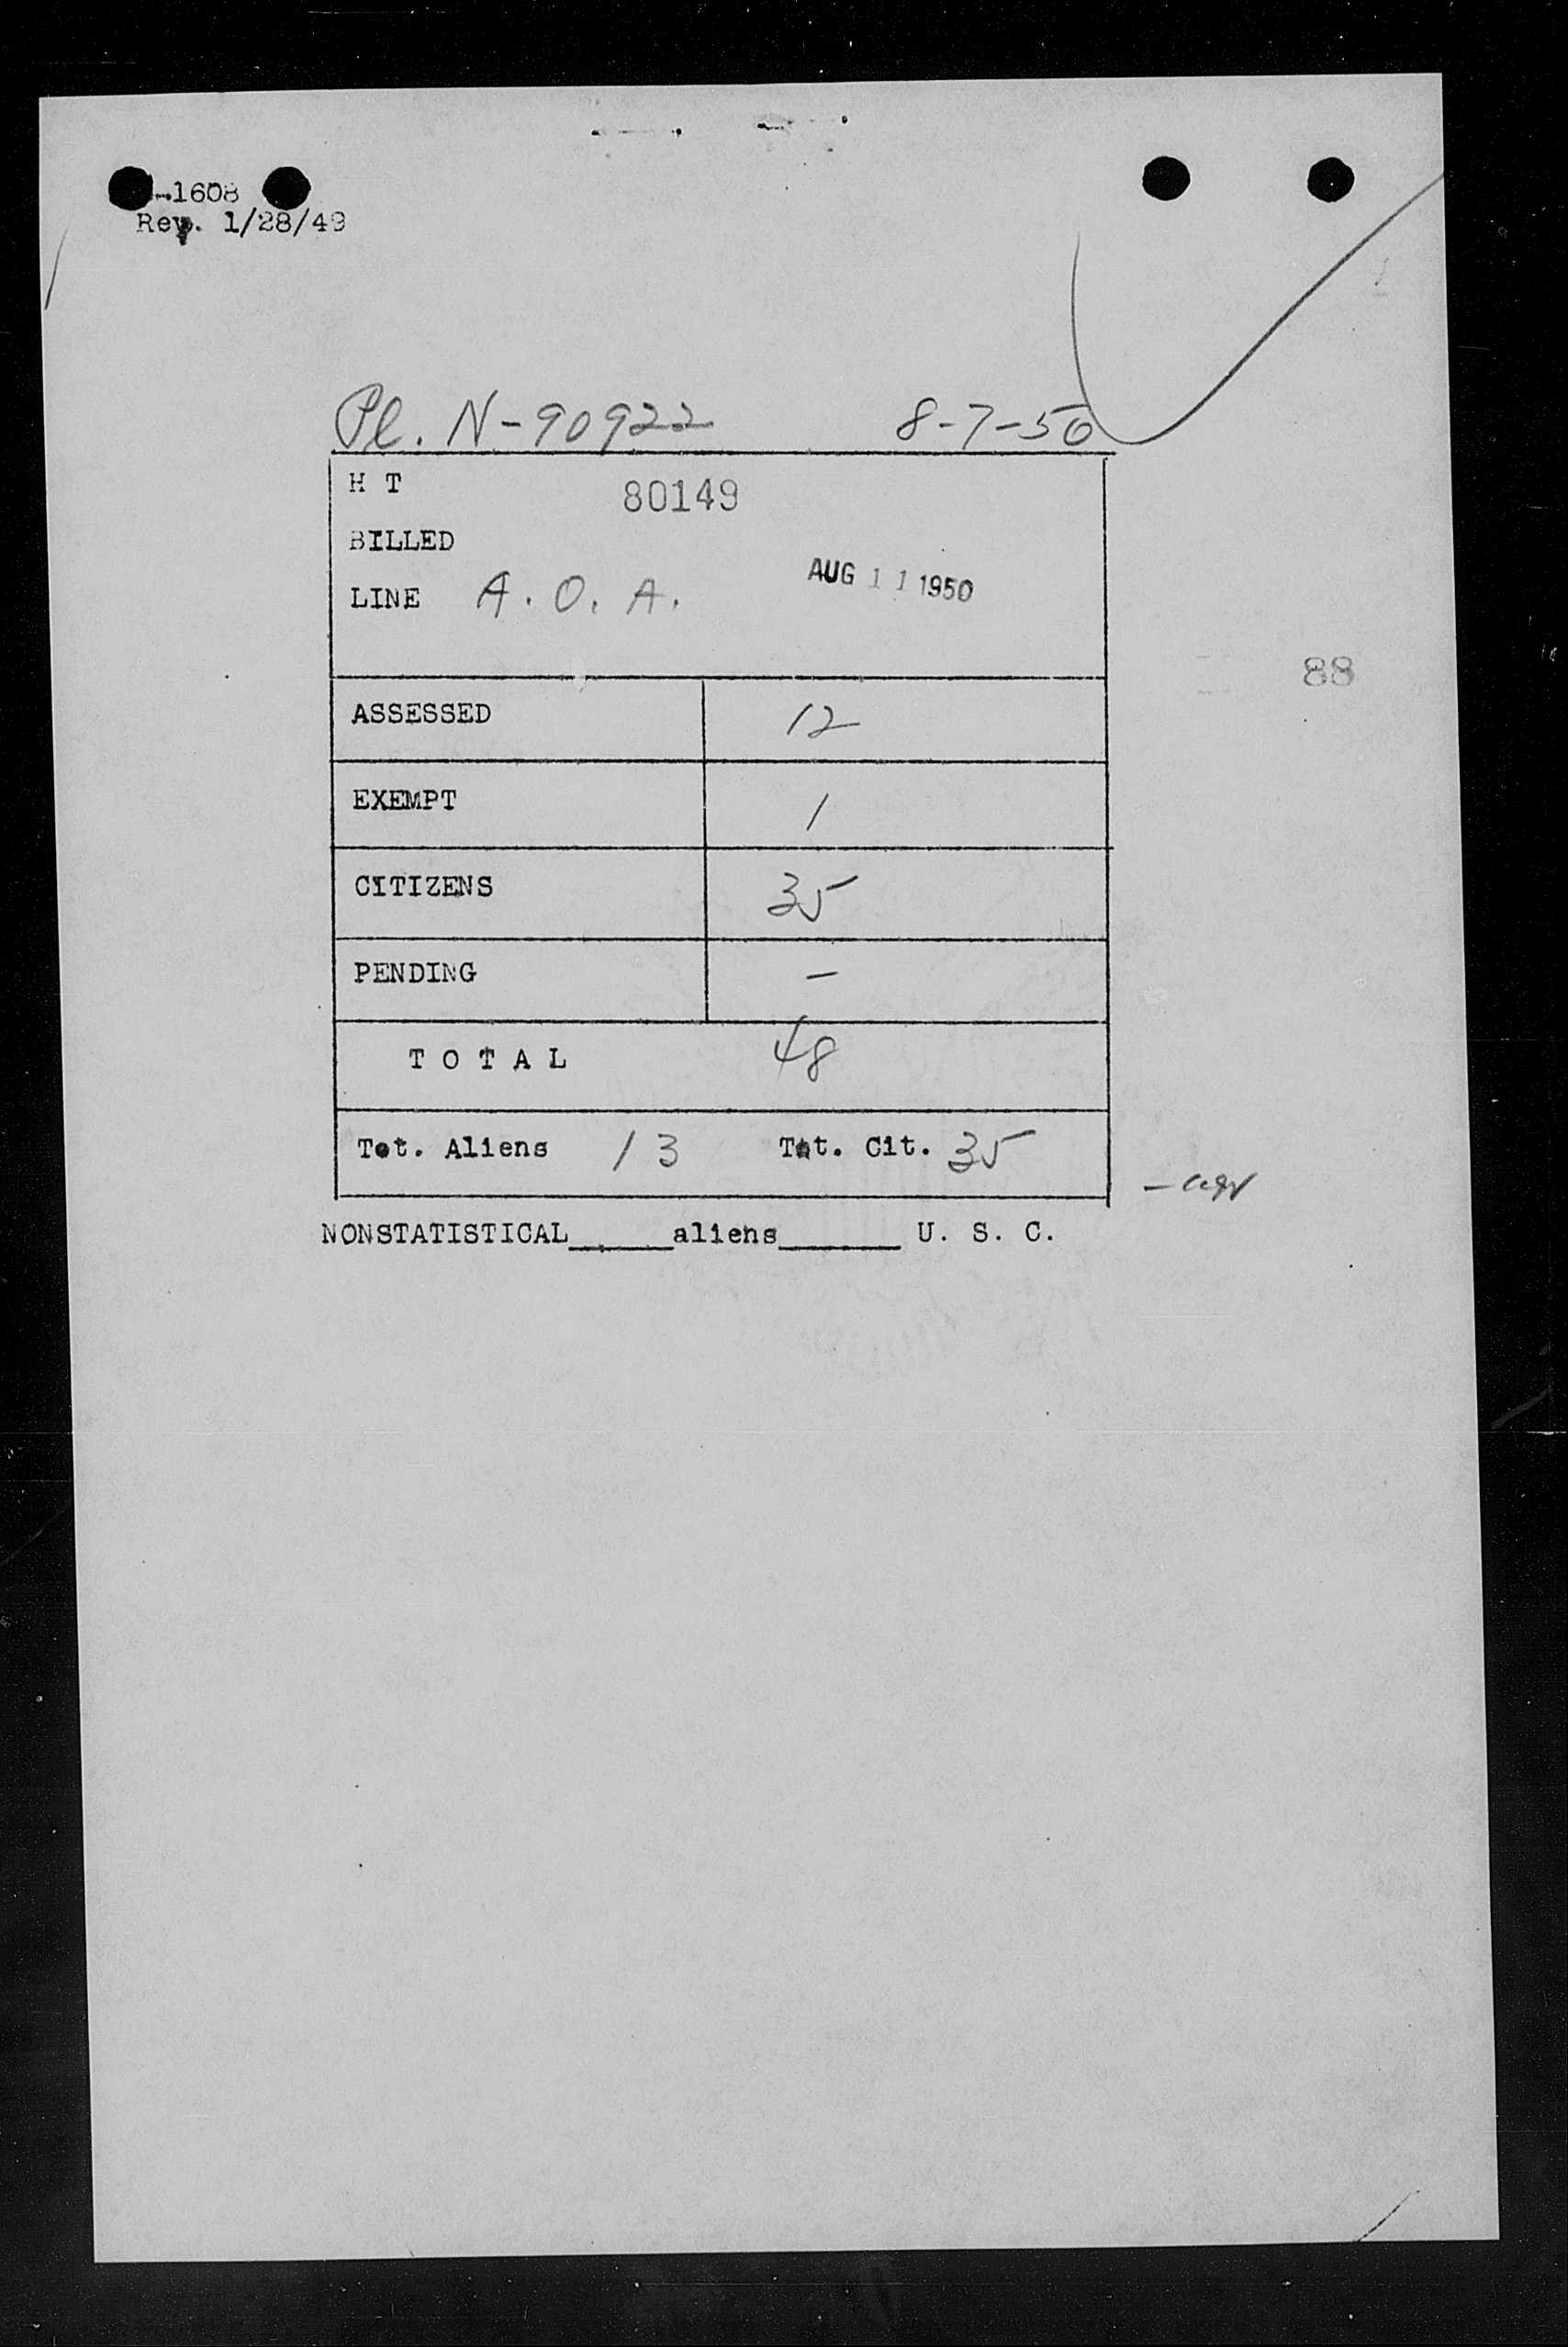 -1608
Rev. 1/28/49
Pl. N-90922 8-7-50
H T 80149
BILLED
LINE A. O. A. AUG 11 1950
88
ASSESSED 12
EXEMPT 1
CITIZENS 35
PENDING —
T O T A L 48
Tot. Aliens 13 Tot. Cit. 35
NONSTATISTICAL_____aliens______ U. S. C.